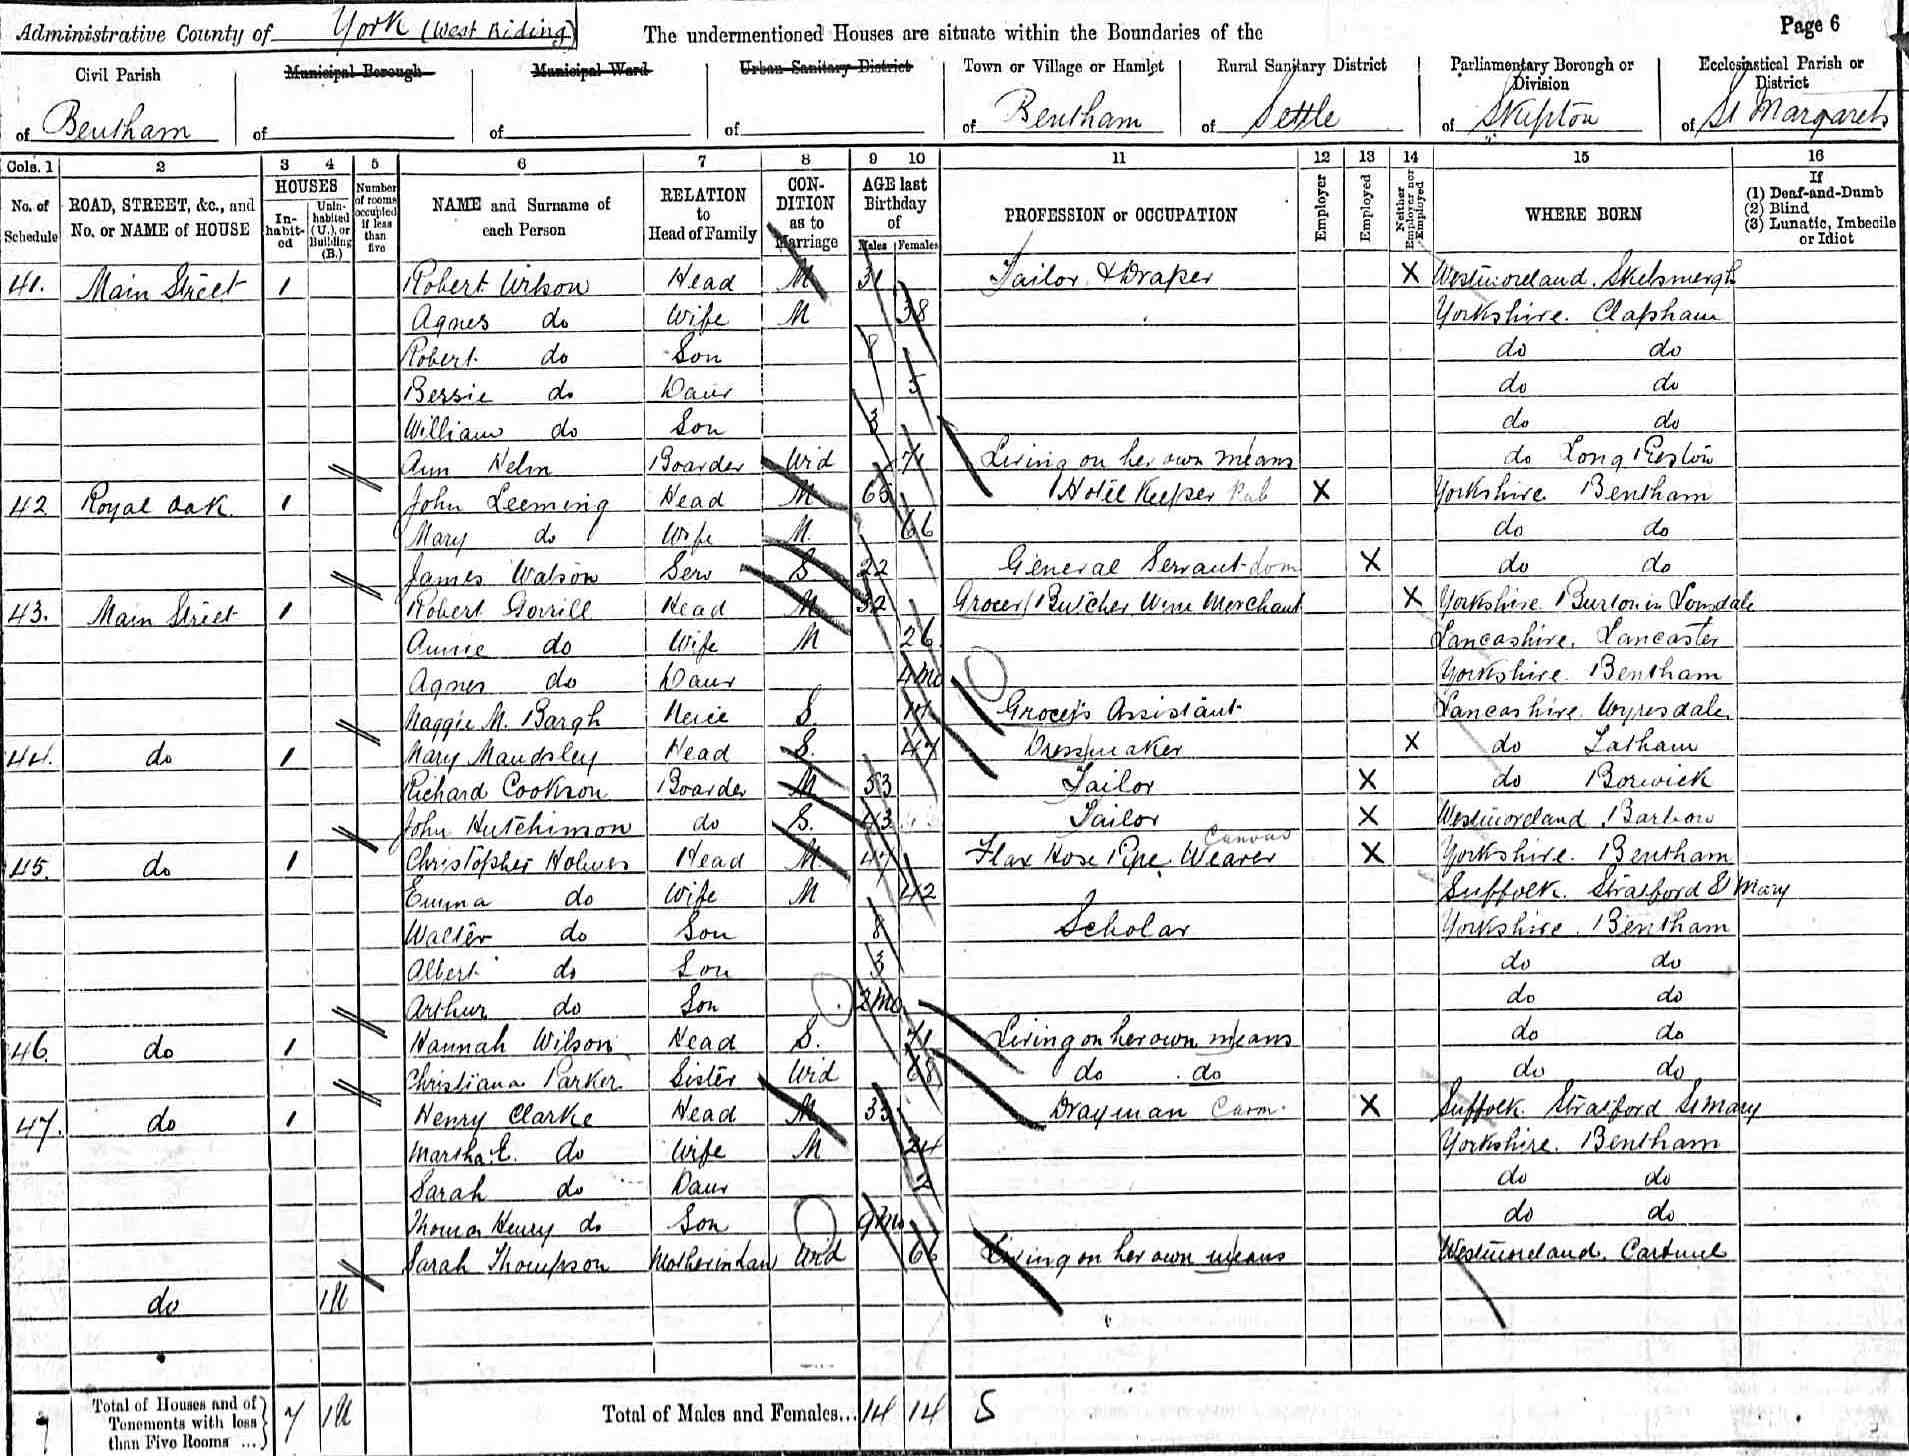 Administrative County of York (West Riding) The undermentioned Houses are situate within the Boundaries of the Page 6
Civil Parish Municipal Borough Municipal Ward Urban Sanitary District Town or Village or Hamlet Rural Sanitary District Parliamentary Borough or Division Ecclesiastical Parish or District
of Bentham of of of of Bentham of Settle of Skipton of St Margarets
Cols. 1 2 3 4 5 6 7 8 9 10 11 12 13 14 15 16
No. of Schedule ROAD, STREET, &c., and No. or NAME of HOUSE HOUSES In-habit-ed Unin-habited (U.), or Building (B.) Number of rooms occupied if less than five NAME and Surname of each Person RELATION to Head of Family CON-DITION as to Marriage AGE last Birthday of Males Females PROFESSION or OCCUPATION Employer Employed Neither Employer nor Employed WHERE BORN If (1) Deaf-and-Dumb (2) Blind (3) Lunatic, Imbecile or Idiot
41. Main Street 1 Robert Head M 31 Tailor & Draper X Westmoreland. Skelsmergh
Agnes do Wife M 38 Yorkshire. Clapham
Robert do Son 8 do do
Bessie do Daur 5 do do
William do Son 3 do do
Ann Helm Boarder Wid 71 Living on her own means do Long Preston
42 Royal Oak 1 John Leeming Head M 65 Hotel Keeper Pub X Yorkshire Bentham
Mary do Wife M. 66 do do
James Watson Serv S. 22 General Servant dom X do do
43. Main Street 1 Robert Gorrill Head M 32 Grocer Butcher Wine Merchant X Yorkshire Burton in Lonsdale
Annie do Wife M 26 Lancashire. Lancaster
Agnes do Daur 4mo Yorkshire. Bentham
Maggie M. Bargh Neice S. Grocer's Assistant Lancashire Wyresdale
44. do 1 Mary Maudsley Head S. 47 Dressmaker X do Latham
Richard Cookson Boarder M 53 Tailor X do Borwick
John Hutchinson do S. 43 Tailor X Westmoreland. Barbon
45. do 1 Christopher Holmes Head M 47 Flax Hose Pipe Canvas Weaver X Yorkshire. Bentham
Emma do Wife M 42 Suffolk. Stratford St Mary
Walter do Son 8 Scholar Yorkshire. Bentham
Albert do Son 3 do do
Arthur do Son 2mo do do
46. do 1 Hannah Wilson Head S. 71 Living on her own means do do
Christiana Parker Sister Wid 68 do do do do
47. do 1 Henry Clarke Head M 33 Drayman Carm. X Suffolk Stratford St Mary
Martha E. do Wife M 24 Yorkshire. Bentham
Sarah do Daur 2 do do
Thomas Henry do Son 9mo do do
Sarah Thompson Motherinlaw Wid 66 Living on her own means Westmoreland. Cartmel
do 1U
Total of Houses and of Tenements with less than Five Rooms ... 7 1U Total of Males and Females... 14 14 5